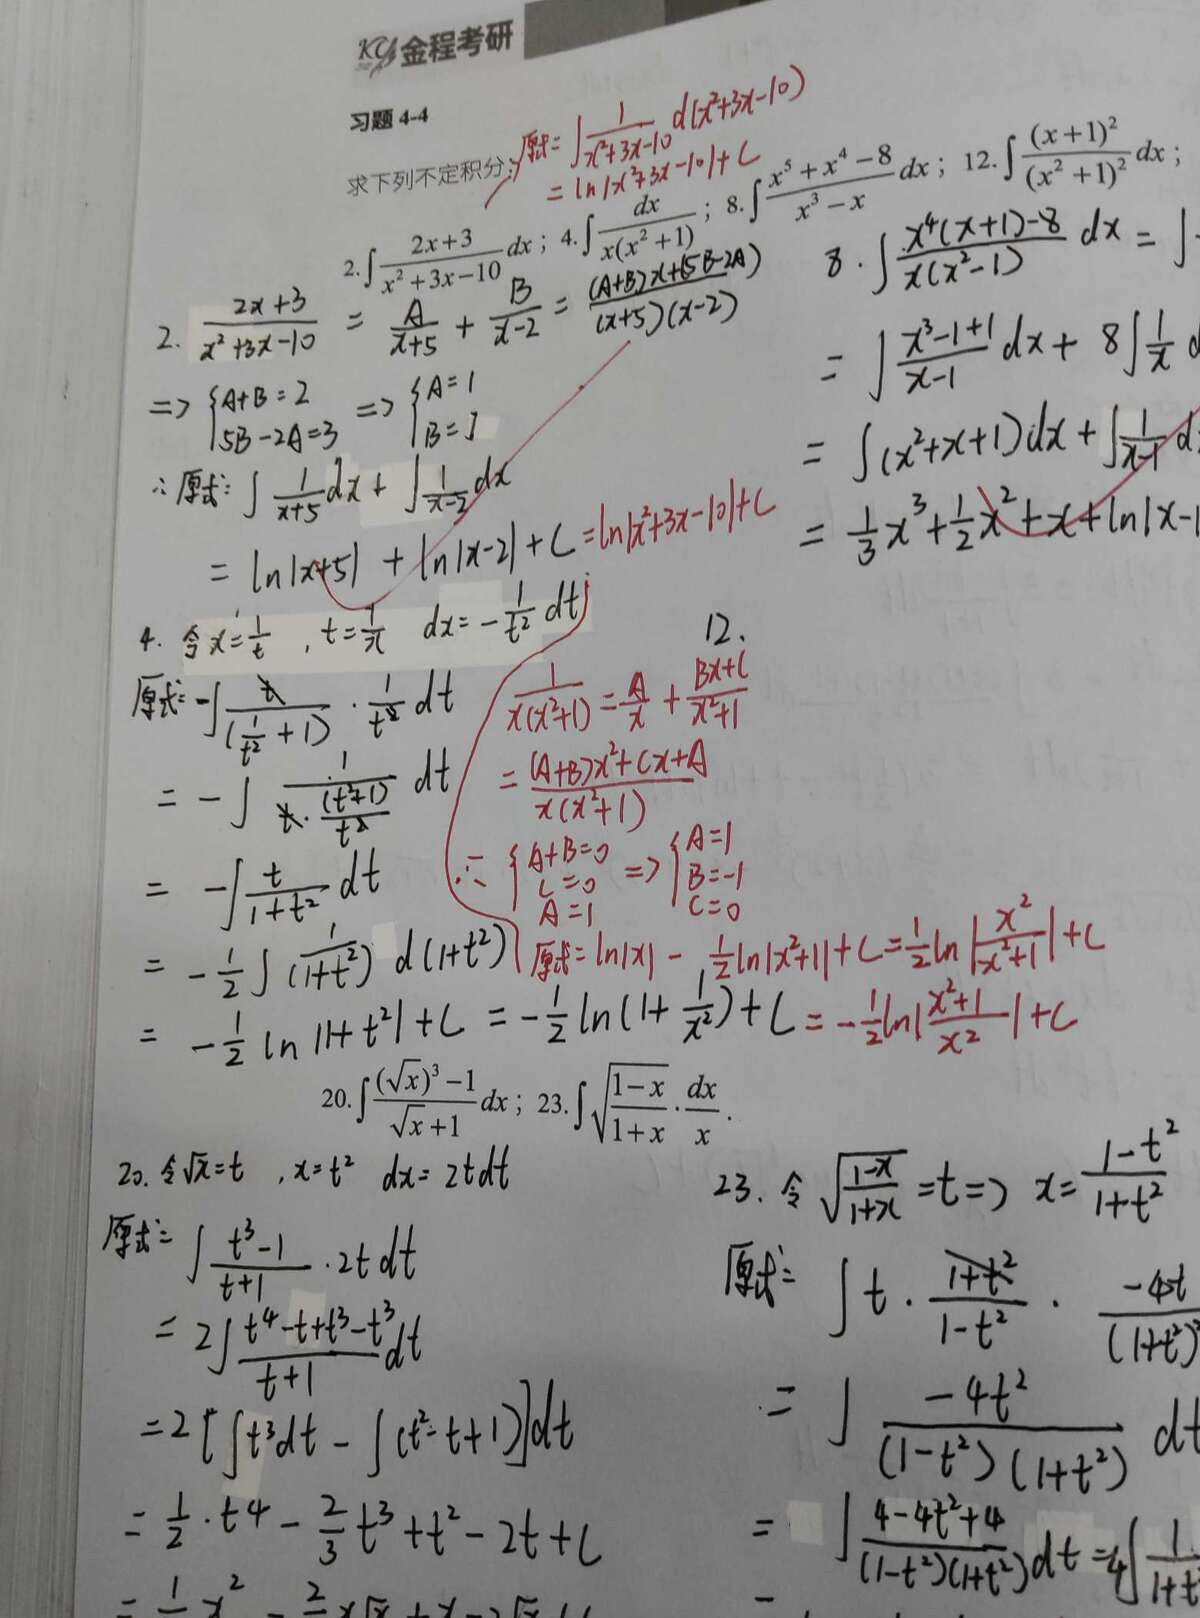 KY 金程考研
习题 4-4
原式= ∫ 1/(x²+3x-10) d(x²+3x-10)
= ln|x²+3x-10|+C
求下列不定积分:
2.∫ (2x+3)/(x²+3x-10) dx； 4.∫ dx/(x(x²+1))； 8.∫ (x⁵+x⁴-8)/(x³-x) dx； 12.∫ (x+1)²/(x²+1)² dx；
2. (2x+3)/(x²+3x-10) = A/(x+5) + B/(x-2) = ((A+B)x+(5B-2A))/((x+5)(x-2))
=> {A+B=2 5B-2A=3 => {A=1 B=1
∴原式= ∫ 1/(x+5) dx + ∫ 1/(x-2) dx
= ln|x+5| + ln|x-2| + C = ln|x²+3x-10|+C
8. ∫ (x⁴(x+1)-8)/(x(x²-1)) dx = ∫
= ∫ (x³-1+1)/(x-1) dx + 8∫ 1/x
= ∫(x²+x+1)dx + ∫ 1/(x-1)
= 1/3 x³ + 1/2 x² + x + ln|x-1
4. 令x=1/t , t=1/x dx = -1/t² dt
原式= -∫ t/(1/t²+1) · 1/t² dt
= -∫ 1/(t·(t²+1)/t²) dt
= -∫ t/(1+t²) dt
= -1/2 ∫ (1/(1+t²)) d(1+t²)
= -1/2 ln|1+t²|+C = -1/2 ln(1+1/x²)+C = -1/2 ln|(x²+1)/x²|+C
12.
1/(x(x²+1)) = A/x + (Bx+C)/(x²+1)
= ((A+B)x²+Cx+A)/(x(x²+1))
∴ {A+B=0 C=0 A=1 => {A=1 B=-1 C=0
原式= ln|x| - 1/2 ln|x²+1|+C = 1/2 ln|x²/(x²+1)|+C
20.∫ ((√x)³-1)/(√x+1) dx； 23.∫ √((1-x)/(1+x)) · dx/x .
20. 令√x=t , x=t² dx=2tdt
原式= ∫ (t³-1)/(t+1) · 2t dt
= 2∫ (t⁴-t+t³-t³)/(t+1) dt
= 2[∫t³dt - ∫(t²-t+1)]dt
= 1/2 · t⁴ - 2/3 t³ + t² - 2t + C
23. 令 √((1-x)/(1+x)) = t => x = (1-t²)/(1+t²)
原式= ∫ t · (1+t²)/(1-t²) · -4t/(1+t²)²
= ∫ -4t²/((1-t²)(1+t²)) dt
= ∫ (4-4t²+4)/((1-t²)(1+t²)) dt = 4∫ 1/(1+t